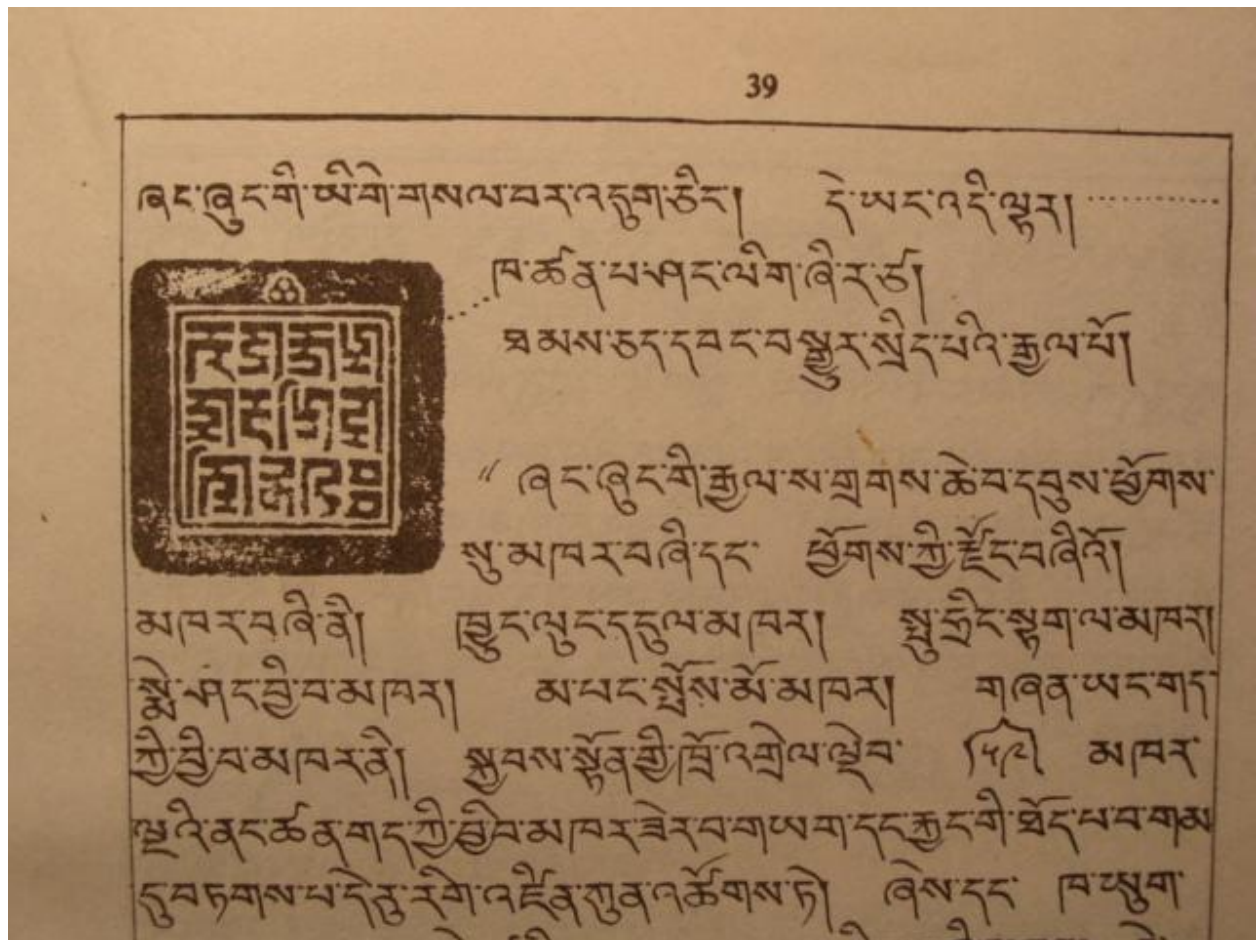 39
ཞང་ཞུང་གི་ཡི་གེ་གསལ་བར་འདུག་ཅིང། དེ་ཡང་འདི་ལྟར། ...............
ཁ་ཚན་པ་ཤང་ལིག་ཞི་ར་ཙ།
ཐམས་ཅད་དབང་བསྒྱུར་སྲིད་པའི་རྒྱལ་པོ།
" ཞང་ཞུང་གི་རྒྱལ་ས་གྲགས་ཆེ་བ་དབུས་ཕྱོགས་
སུ་མཁར་བཞི་དང་ ཕྱོགས་ཀྱི་རྫོང་བཞིའོ།
མཁར་བཞི་ནི། ཁྱུང་ལུང་དངུལ་མཁར། སྤུ་ཧྲིང་སྟག་ལ་མཁར།
སྨྲེ་ཤང་བྱི་བ་མཁར། མ་པང་སྤོས་མོ་མཁར། གཞན་ཡང་གད་
ཀྱི་བྱི་བ་མཁར་ནི། སྐྱབས་སྟོན་གྱི་ཁྲོ་འགྲེལ་ལྡེབ་ (༥༩) མཁར་
ལྔའི་ནང་ཚན་གད་ཀྱི་བྱི་བ་མཁར་ཟེར་བ་གཡག་དང་རྐྱང་གི་ཐོད་པ་བ་གམ་
དུ་བཏགས་པ་དེནུ་རིག་འཛིན་ཀུན་འཚོགས་ཏེ། ཞེས་དང་ ཁ་ཡུག་